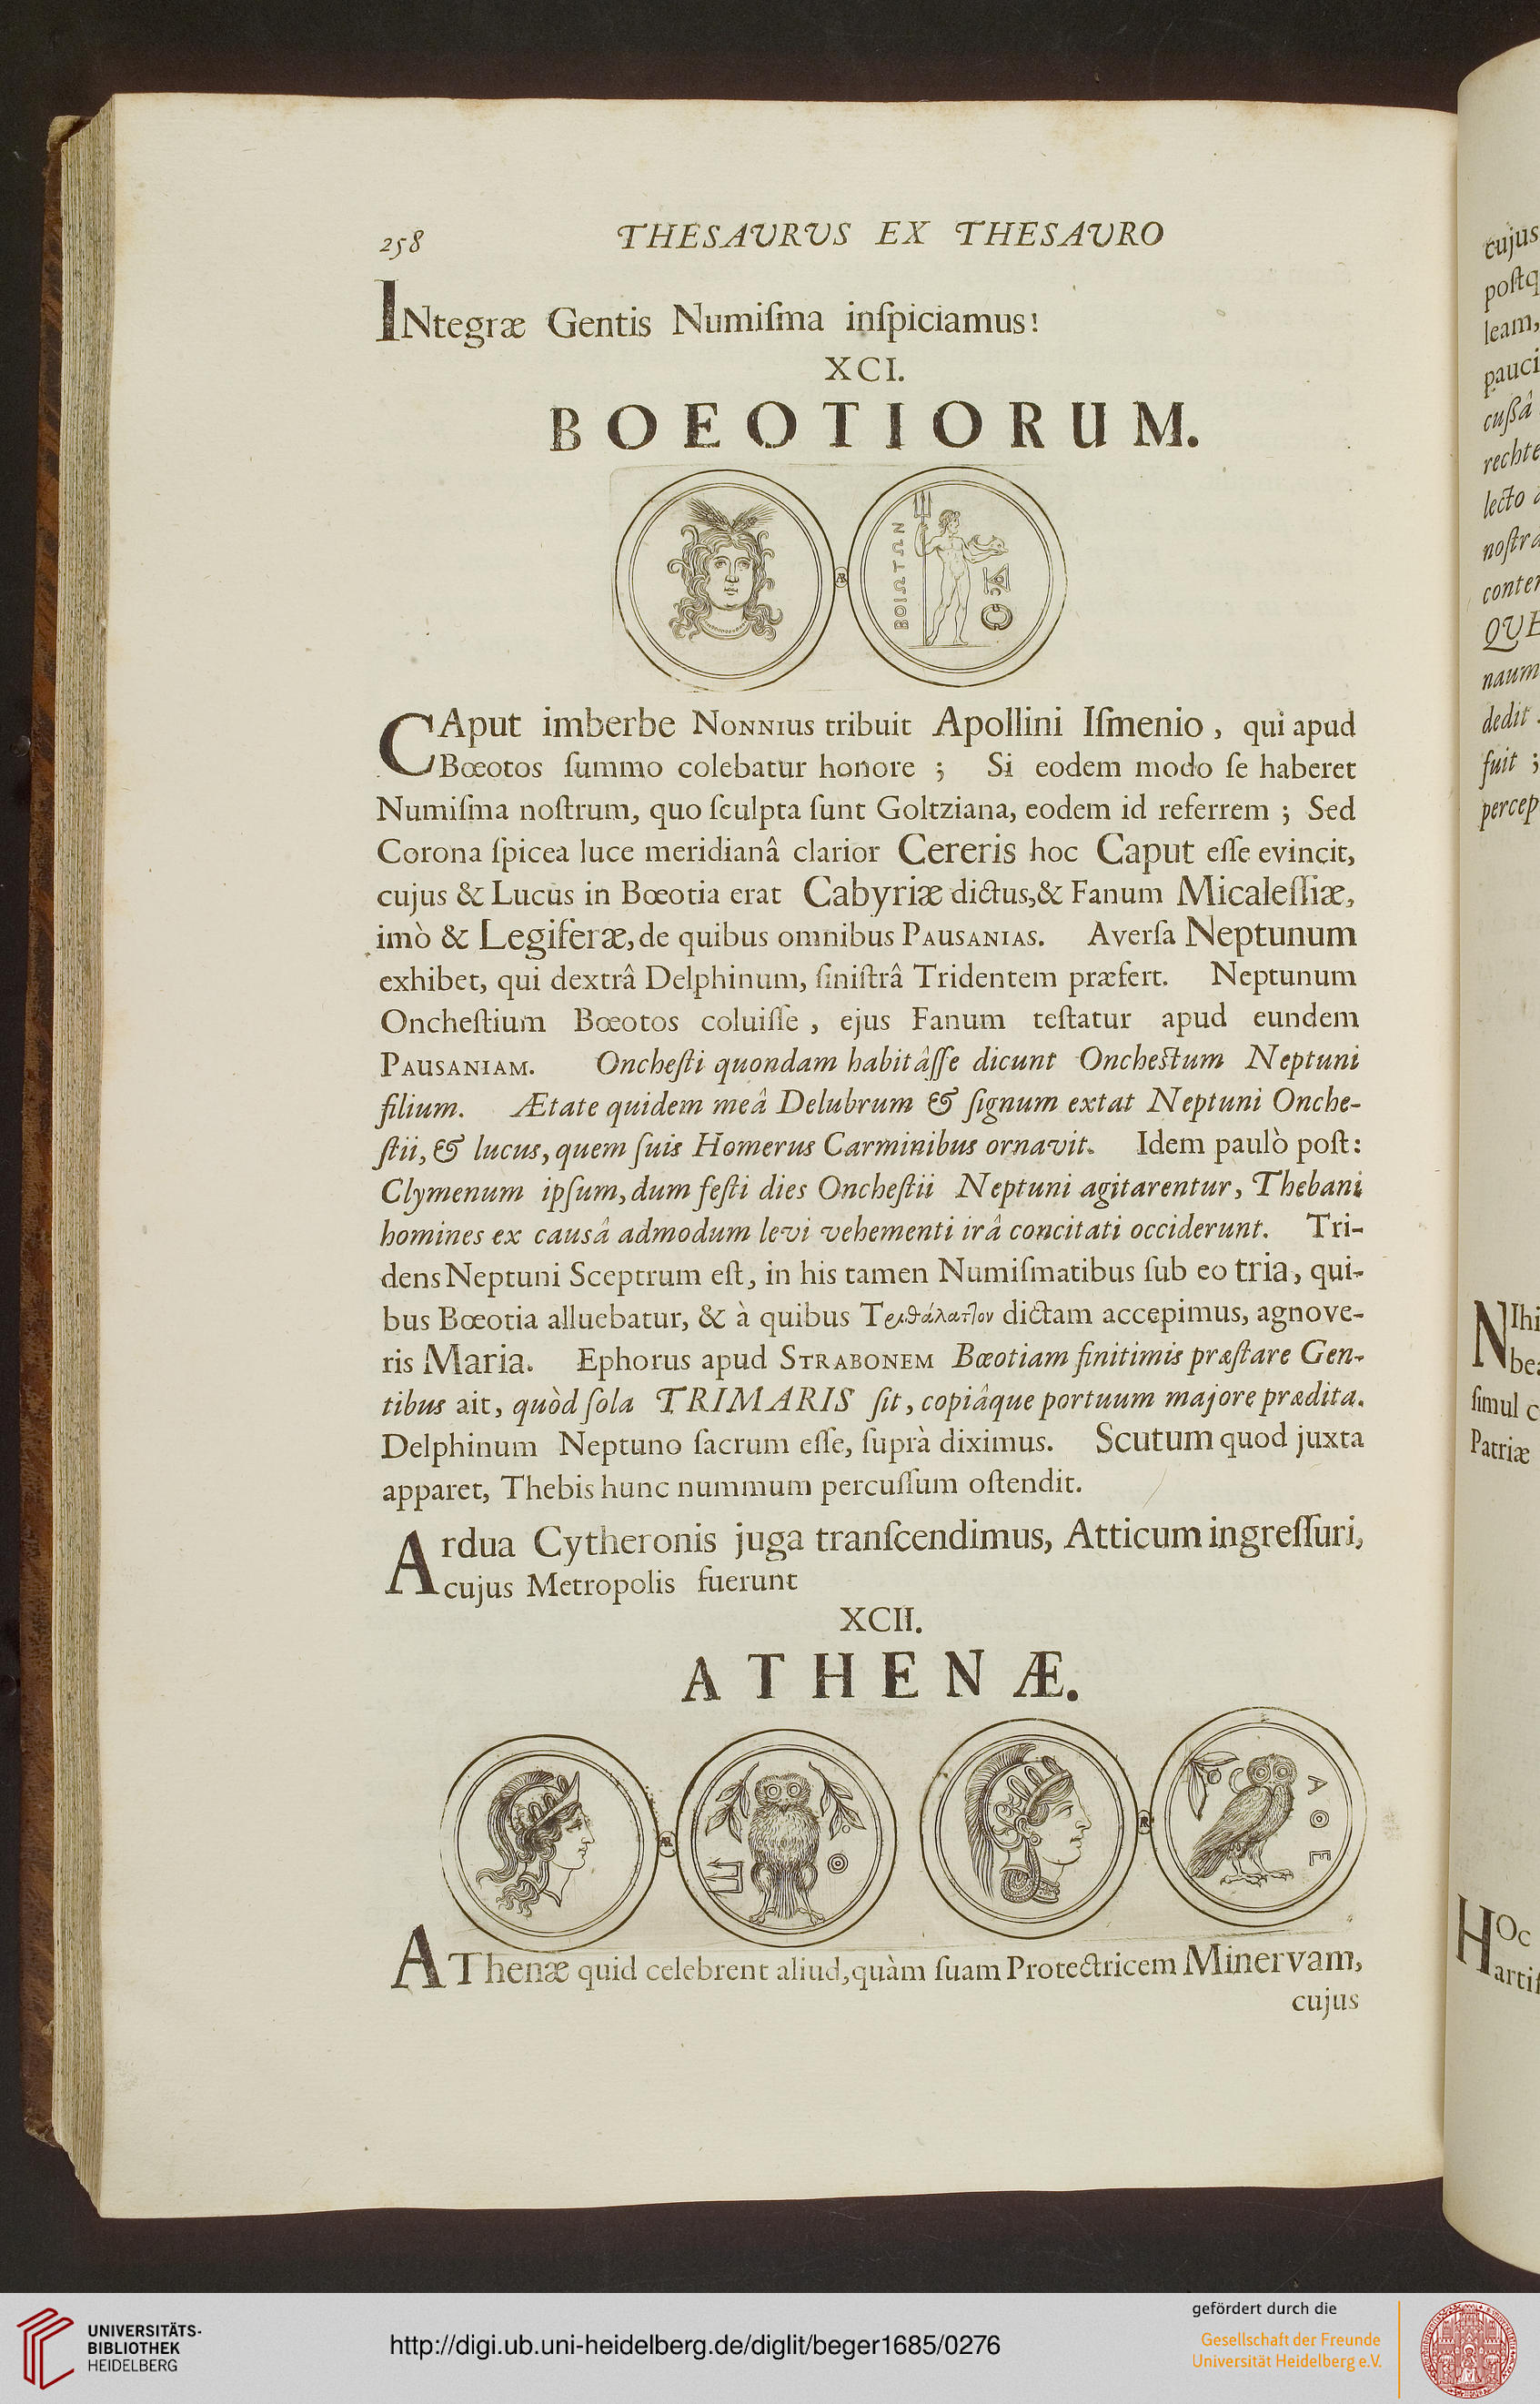 258 THESAURUS EX THESAURO
INtegræ Gentis Numiſma inſpiciamus!
XCI.
BOEOTIORUM.
ΒΟΙΩΤΩΝ
CAput imberbe NONNIUS tribuit Apollini Iſmenio, qui apud
Bœotos ſummo colebatur honore ; Si eodem modo ſe haberet
Numiſma noſtrum, quo ſculpta ſunt Goltziana, eodem id referrem ; Sed
Corona ſpicea luce meridianâ clarior Cereris hoc Caput eſſe evincit,
cujus & Lucus in Bœotia erat Cabyriæ dictus,& Fanum Micaleſſiæ,
imò & Legiferæ, de quibus omnibus PAUSANIAS. Averſa Neptunum
exhibet, qui dextrâ Delphinum, ſiniſtrâ Tridentem præfert. Neptunum
Oncheſtium Bœotos coluiſſe , ejus Fanum teſtatur apud eundem
PAUSANIAM. Oncheſti quondam habitâſſe dicunt Oncheſtum Neptuni
filium. Ætate quidem meâ Delubrum & ſignum extat Neptuni Onche-
ſtii, & lucus, quem ſuis Homerus Carminibus ornavit. Idem paulò poſt:
Clymenum ipſum, dum feſti dies Oncheſtii Neptuni agitarentur, Thebani
homines ex causâ admodum levi vehementi irâ concitati occiderunt. Tri-
dens Neptuni Sceptrum eſt, in his tamen Numiſmatibus ſub eo tria, qui-
bus Bœotia alluebatur, & à quibus Τριθάλατ]ον dictam accepimus, agnove-
ris Maria. Ephorus apud STRABONEM Bœotiam finitimis præſtare Gen-
tibus ait, quòd ſola TRIMARIS ſit, copiâque portuum majore prædita.
Delphinum Neptuno ſacrum eſſe, ſuprà diximus. Scutum quod juxta
apparet, Thebis hunc nummum percuſſum oſtendit.
Ardua Cytheronis juga tranſcendimus, Atticum ingreſſuri,
cujus Metropolis fuerunt
XCII.
ATHENÆ.
Α Θ Ε
AThenæ quid celebrent aliud,quàm ſuam Protectricem Minervam,
cujus
cujus
poſtq
leam,
pauci
cußâ
rechte
lecto
noſtra
conter
QUE
naum
dedit
fuit ;
percep
NIhi
bea
ſimul c
Patriæ
HOc
artiſ
UNIVERSITÄTS-
BIBLIOTHEK
HEIDELBERG
http://digi.ub.uni-heidelberg.de/diglit/beger1685/0276
gefördert durch die
Gesellschaft der Freunde
Universität Heidelberg e.V.